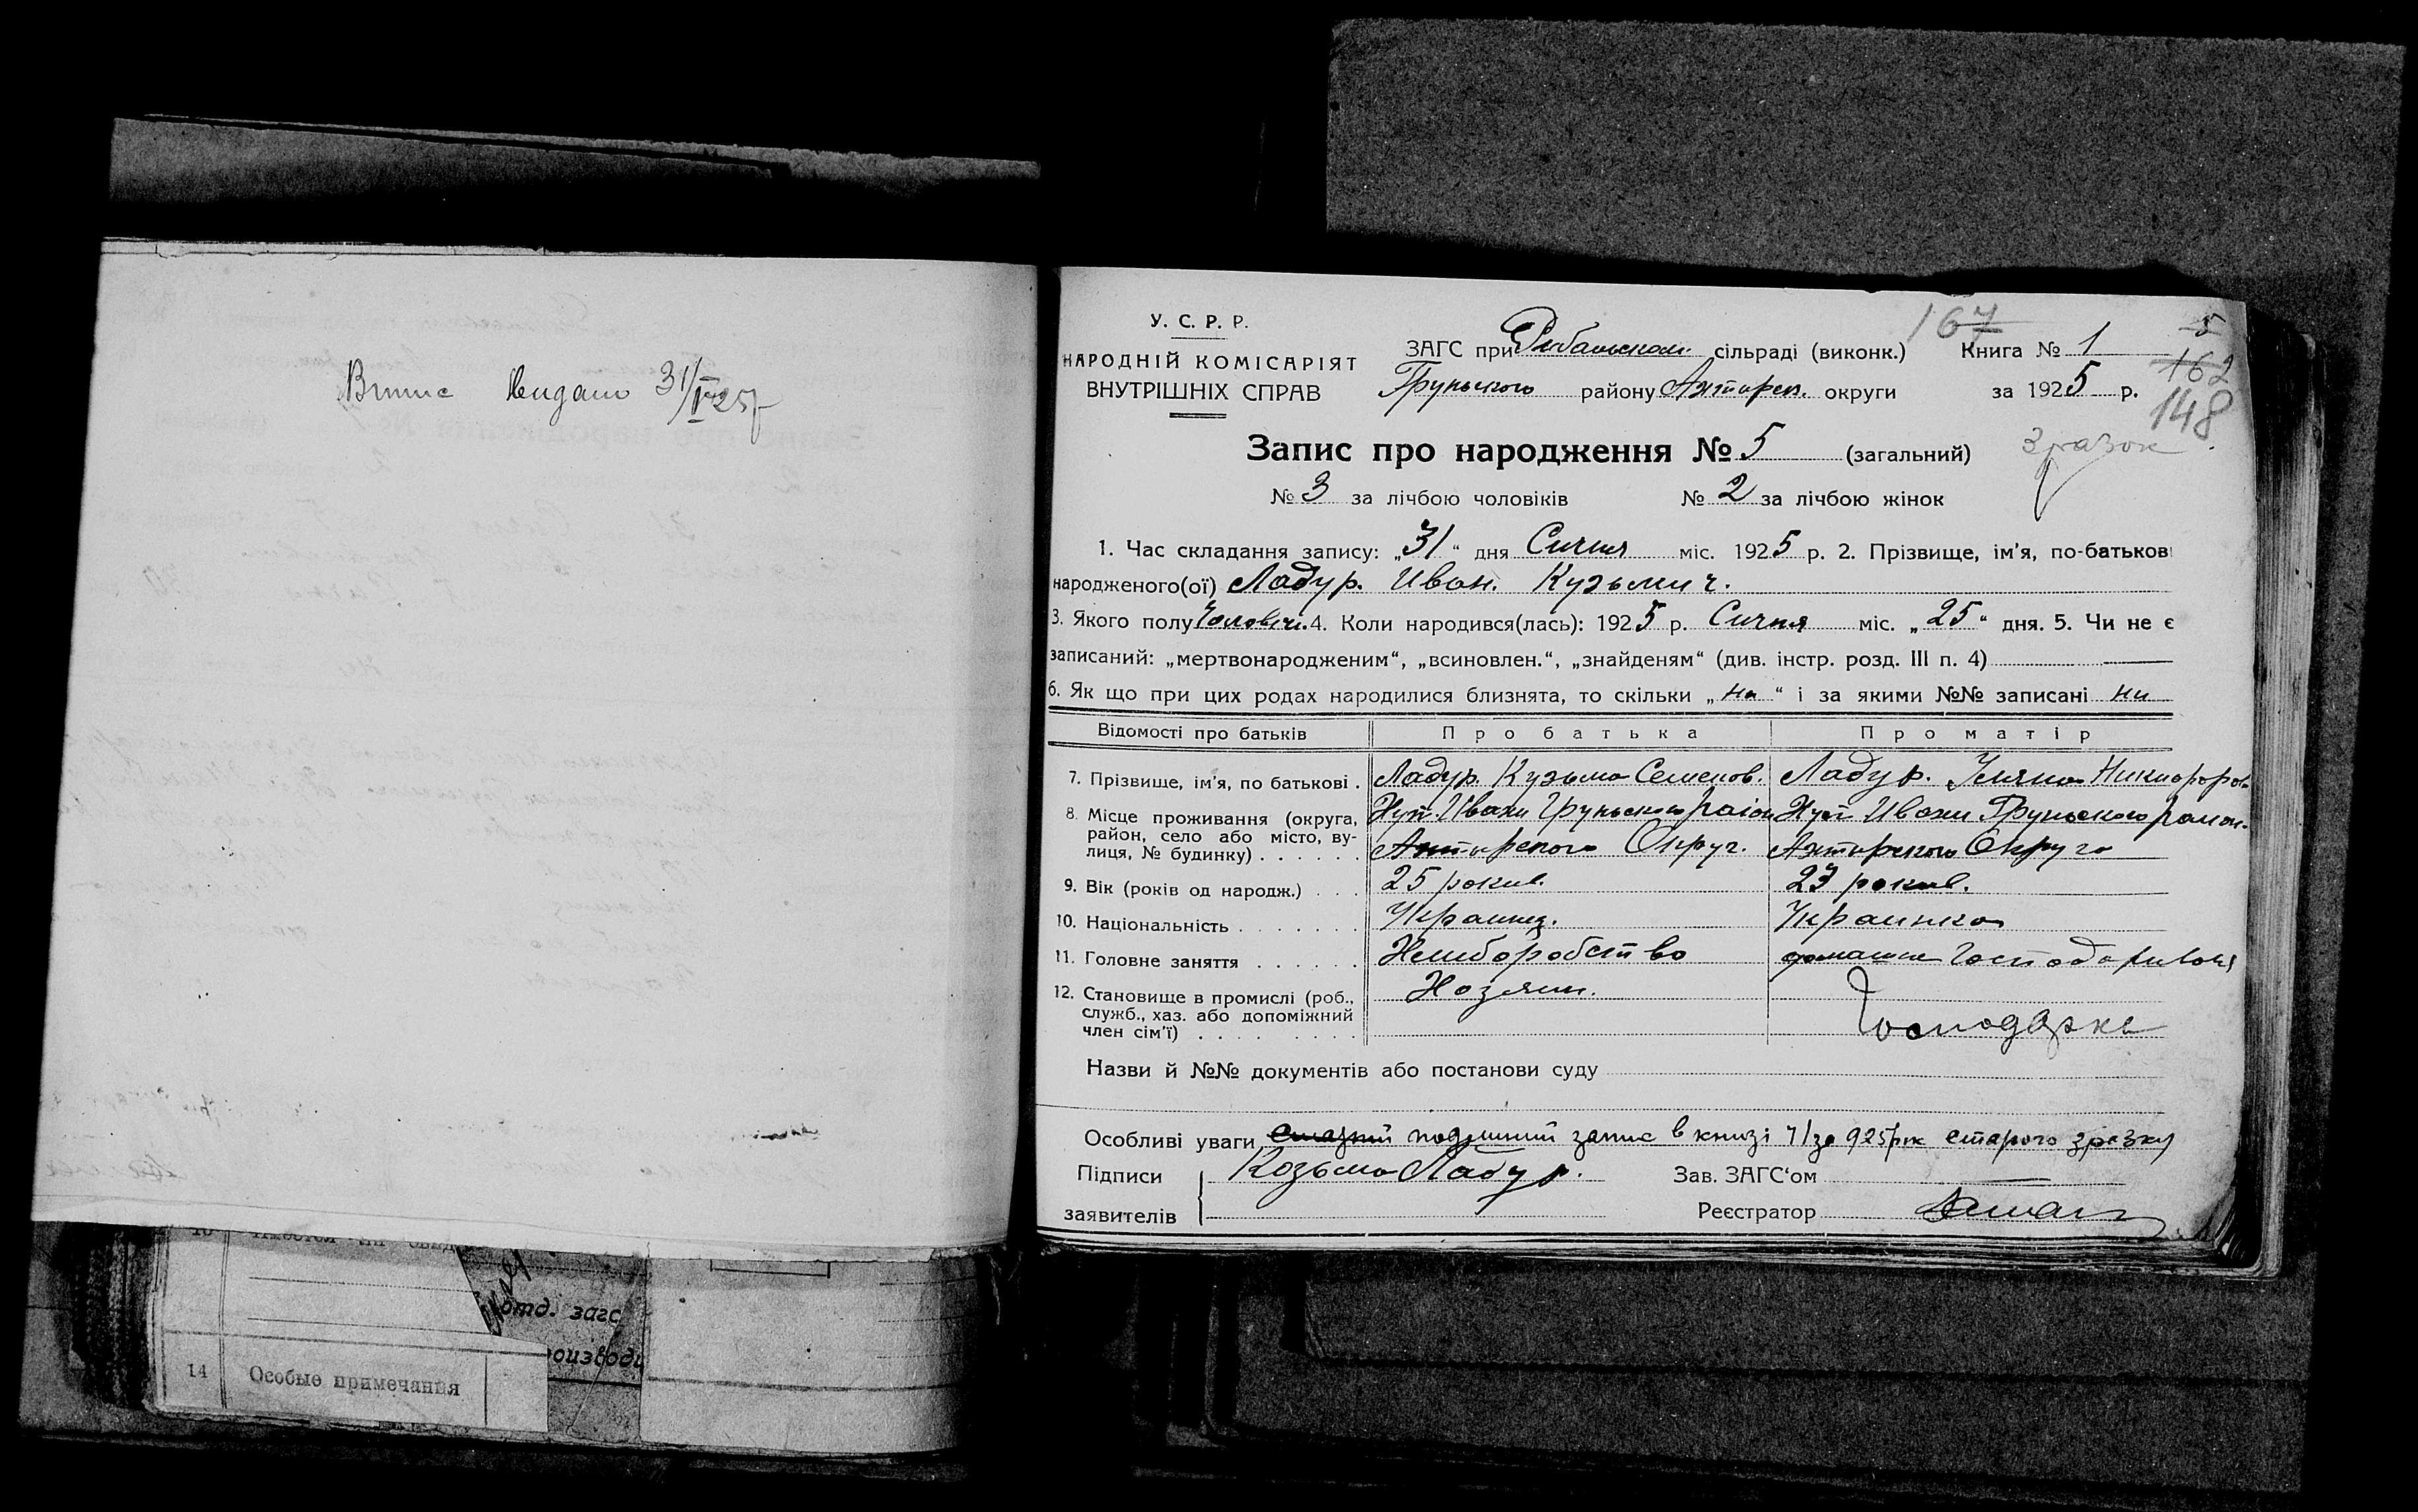 Випис видано 31/I 25р
У. С. Р. Р.
НАРОДНІЙ КОМІСАРІЯТ
ВНУТРІШНІХ СПРАВ
ЗАГС при Рибальском сільраді (виконк.)
Груньского району Ахтирск. округи
167
Книга № 1
за 1925 р.
5
162
148
зразок
Запис про народження № 5 (загальний)
№ 3 за лічбою чоловіків № 2 за лічбою жінок
1. Час складання запису: „31“ дня Сичня міс. 1925 р. 2. Прізвище, ім’я, по-батькові
народженого(ої) Ладур. Иван. Кузьмич.
3. Якого полу Чоловічі. 4. Коли народився(лась): 1925 р. Сичня міс. „25“ дня. 5. Чи не є
записаний: „мертвонародженим“, „всиновлен.“, „знайденям“ (див. інстр. розд. III п. 4)
6. Як що при цих родах народилися близнята, то скільки „ни“ і за якими №№ записані ни
Відомості про батьків Про батька Про матір
7. Прізвище, ім’я, по батькові . Ладур. Кузьма Семенов. Ладур. Уляна Никифоров.
8. Місце проживання (округа, Хут. Ивахи Груньского район Хут Ивахи Груньского район.
район, село або місто, ву-
лиця, № будинку) . . . . . . Ахтирского Округ. Ахтирского Округа
9. Вік (років од народж.) . . . 25 рокив. 23 рокив.
10. Національність . . . . . . . Украинец. Украинка
11. Головне заняття . . . . . . Хлиборобство домашне Господарювання
12. Становище в промислі (роб., Хозяин.
служб., хаз. або допоміжний Господарка
член сім’ї) . . . . . . . .
Назви й №№ документів або постанови суду
Особливі уваги подлинний запис в книзі Ч1 за 925 рік старого зразку
Підписи Козьма Ладур. Зав. ЗАГС‘ом
заявителів Реєстратор
отд. загс
14 Особые примечания